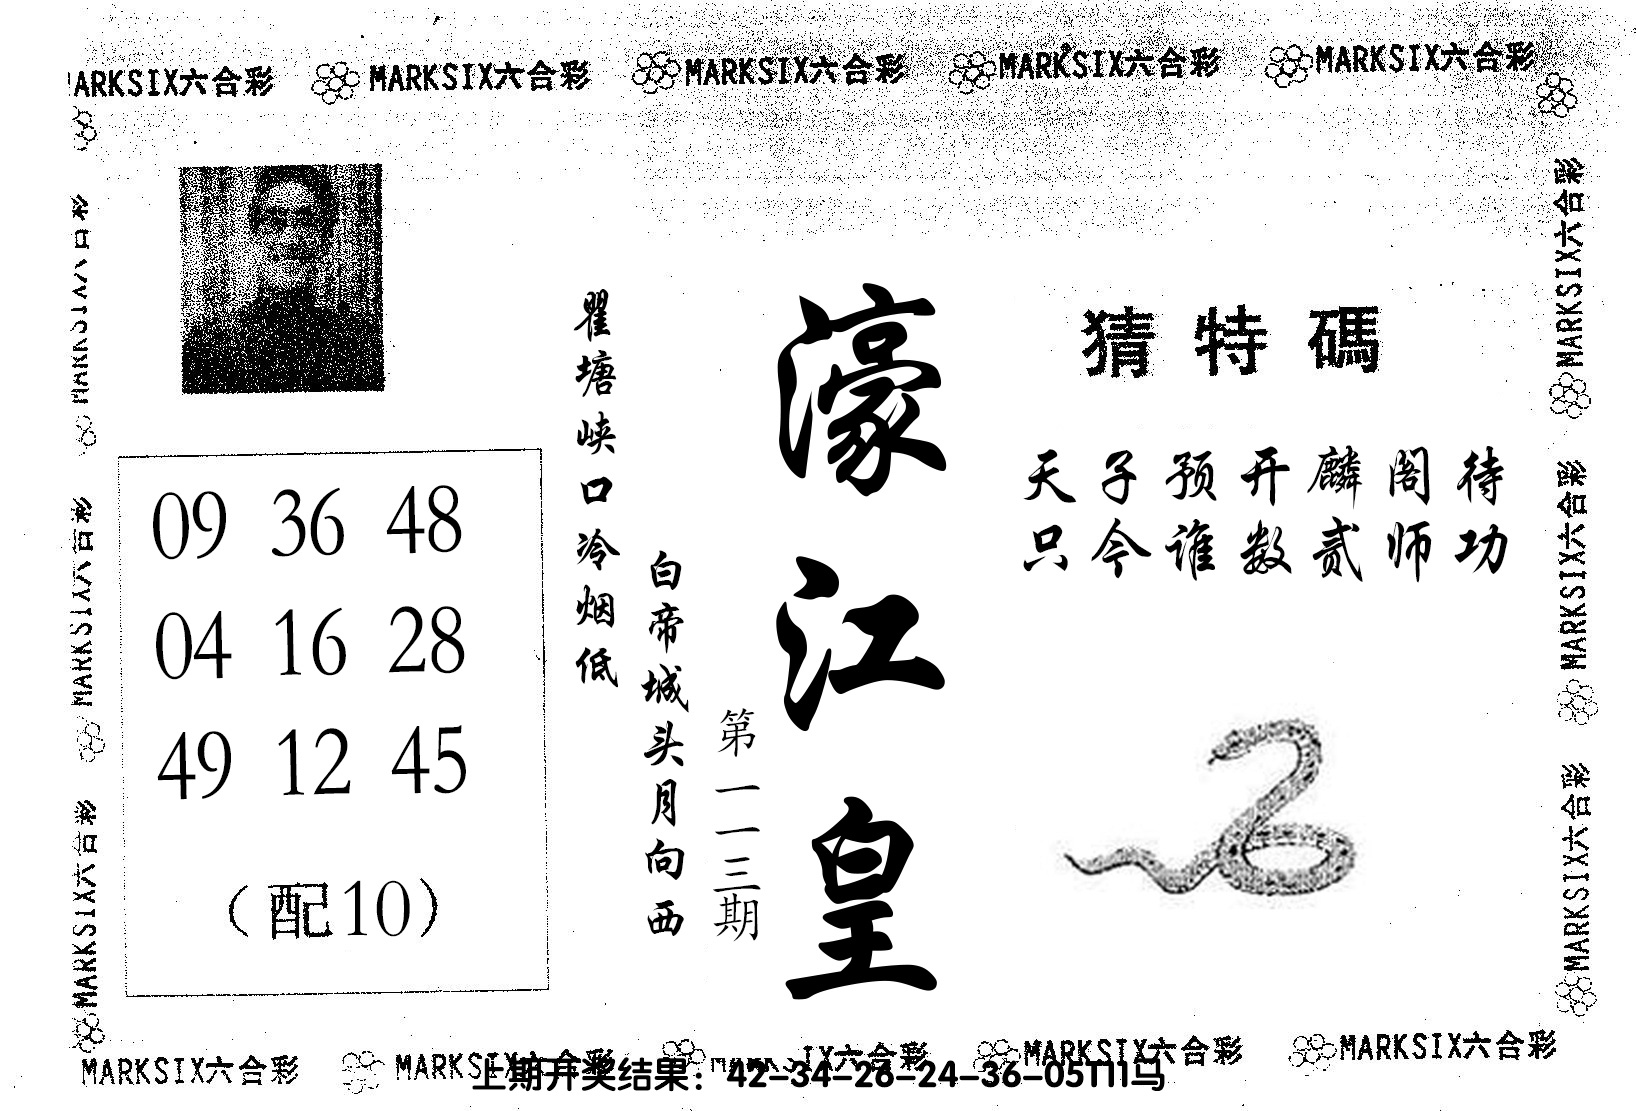 MARKSIX六合彩 MARKSIX六合彩 MARKSIX六合彩 MARKSIX六合彩
猜特碼
天子预开麟阁待
只今谁数贰师功
濠江皇
第一一三期
白帝城头月向西
瞿塘峡口冷烟低
09 36 48
04 16 28
49 12 45
（配10）
MARKSIX六合彩
MARKSIX六合彩
MARKSIX六合彩
MARKSIX六合彩
MARKSIX六合彩
MARKSIX六合彩 MARKSIX六合彩 MARKSIX六合彩 MARKSIX六合彩
上期开奖结果：42-34-26-24-36-05T11马